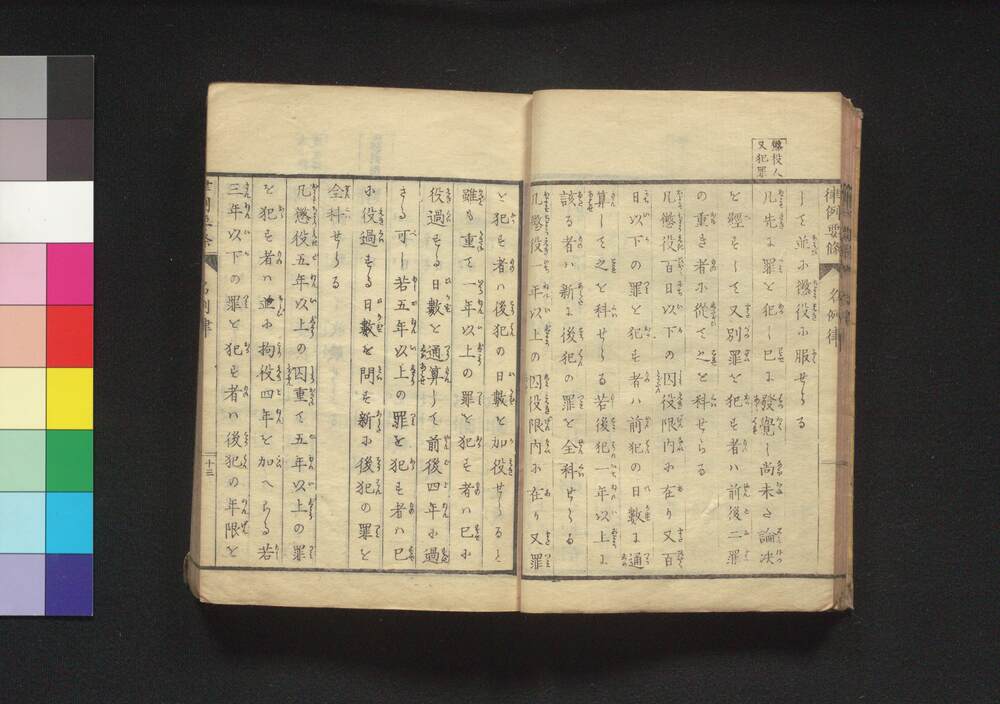 懲役人
又犯罪
律例要條
名例律
して並に懲役に服せらる
凡先に罪を犯し已に發覺し尚未た論决
を歷すして又別罪を犯す者ハ前後二罪
の重き者に從て之を科せらる
凡懲役百日以下の囚役限内に在り又百
日以下の罪を犯す者ハ前犯の日數に通
算して之を科せらる若後犯一年以上に
該る者ハ新に後犯の罪を全科せらる
凡懲役一年以上の囚役限内に在り又罪
を犯す者ハ後犯の日數を加役せらると
雖も重て一年以上の罪を犯す者ハ已に
役過する日數を通算して前後四年に過
きる可し若五年以上の罪を犯す者ハ已
に役過する日數を問す新に後犯の罪を
全科せらる
凡懲役五年以上の囚重て五年以上の罪
を犯す者ハ並に拘役四年を加へらる若
三年以下の罪を犯す者ハ後犯の年限を
名例律
十三